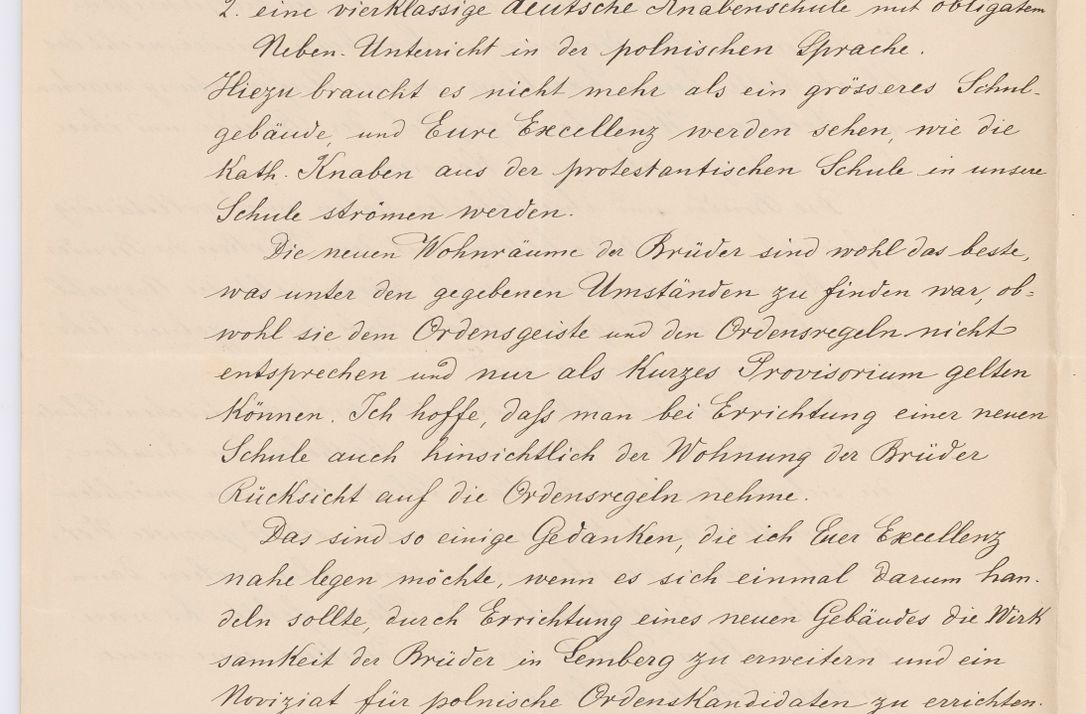 2. eine vierklassige deutsche Knabenschule mit obligatem
Neben-Unterricht in der polnischen Sprache.
Hiezu braucht es nicht mehr als ein grösseres Schul-
gebäude, und Eure Excellenz werden sehen, wie die
kath. Knaben aus der protestantischen Schule in unsere
Schule strömen werden.
Die neuen Wohnräume der Brüder sind wohl das beste,
was unter den gegebenen Umständen zu finden war, ob=
wohl sie dem Ordensgeiste und den Ordensregeln nicht
entsprechen und nur als kurzes Provisorium gelten
können. Ich hoffe, daſs man bei Errichtung einer neuen
Schule auch hinsichtlich der Wohnung der Brüder
Rücksicht auf die Ordensregeln nehme.
Das sind so einige Gedanken, die ich Euer Excellenz
nahe legen möchte, wenn es sich einmal darum han-
deln sollte, durch Errichtung eines neuen Gebäudes die Wirk
samkeit der Brüder in Lemberg zu erweitern und ein
Noviziat für polnische Ordenskandidaten zu errichten.